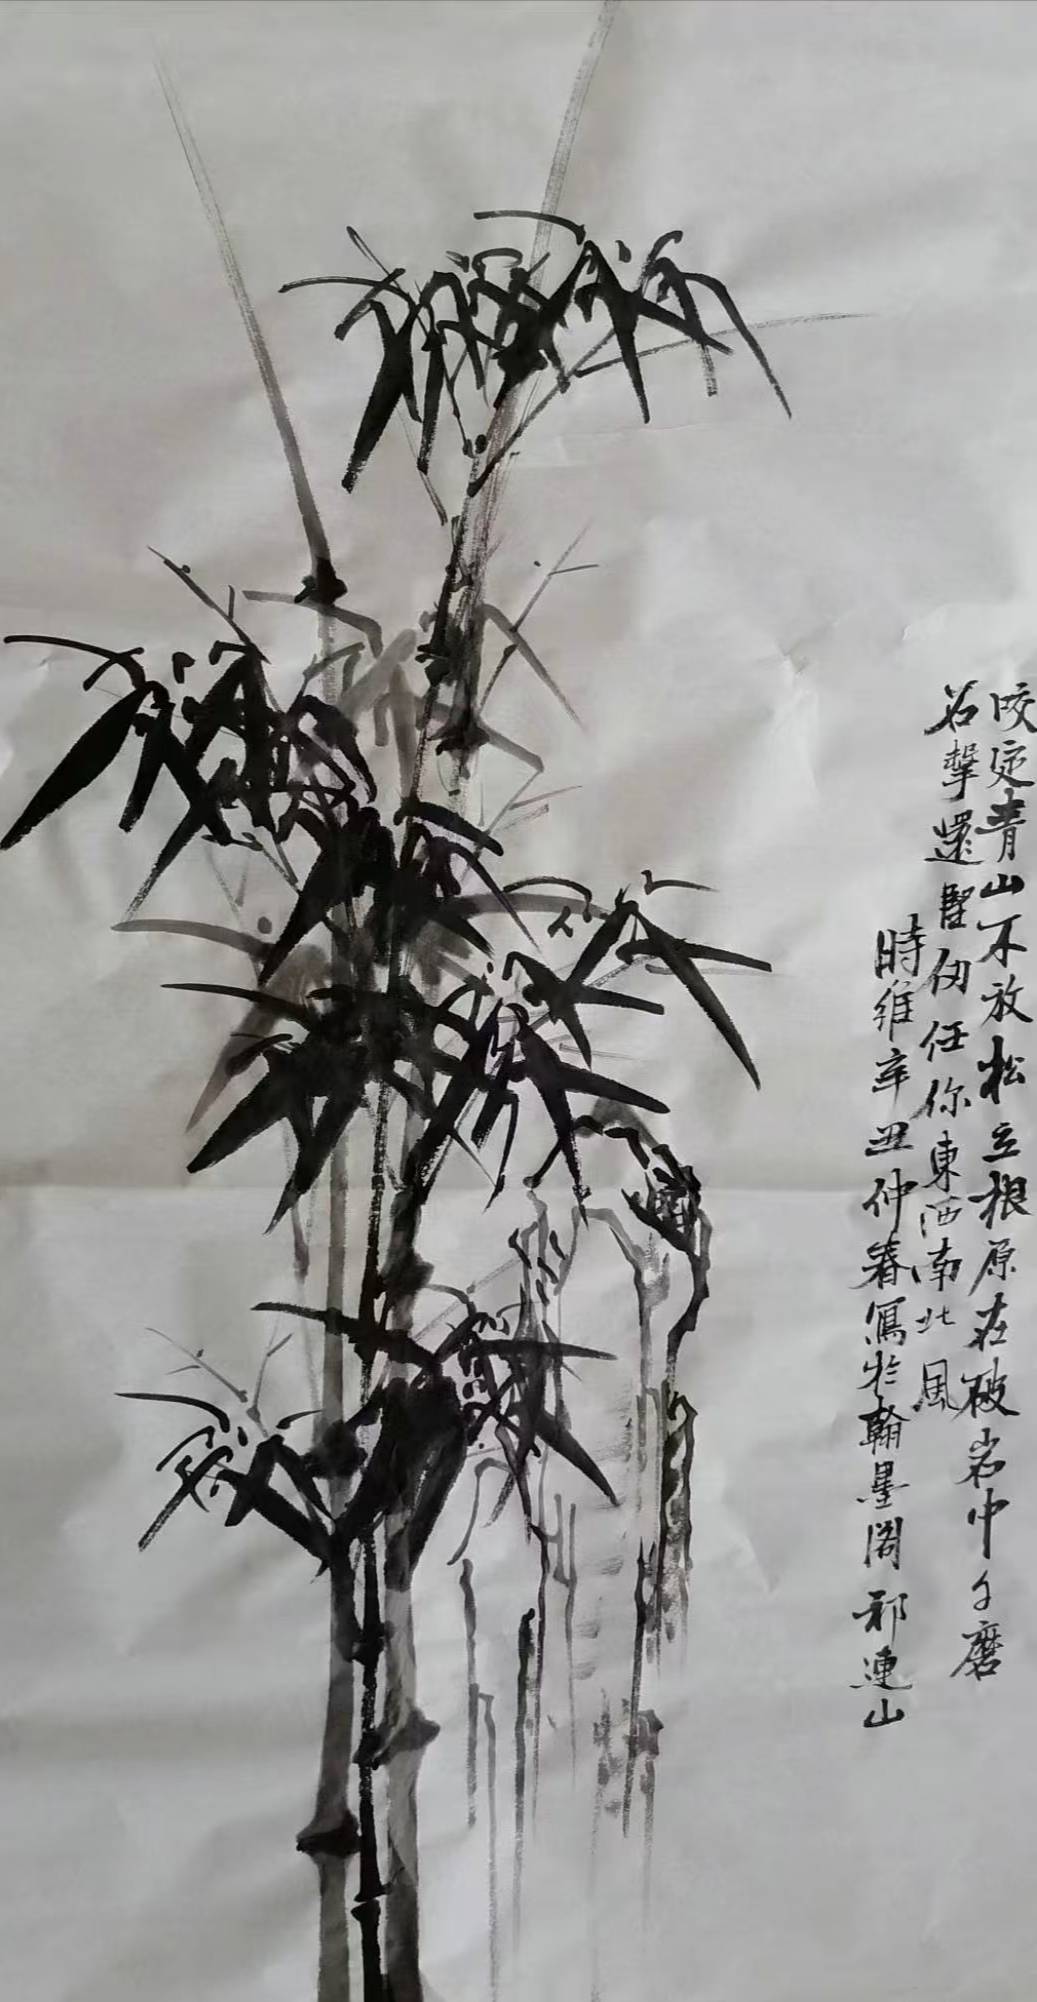 咬定青山不放松立根原在破岩中千磨
石擊還堅仞任你東西南北風
時維辛丑仲春寫於翰墨阁祁連山